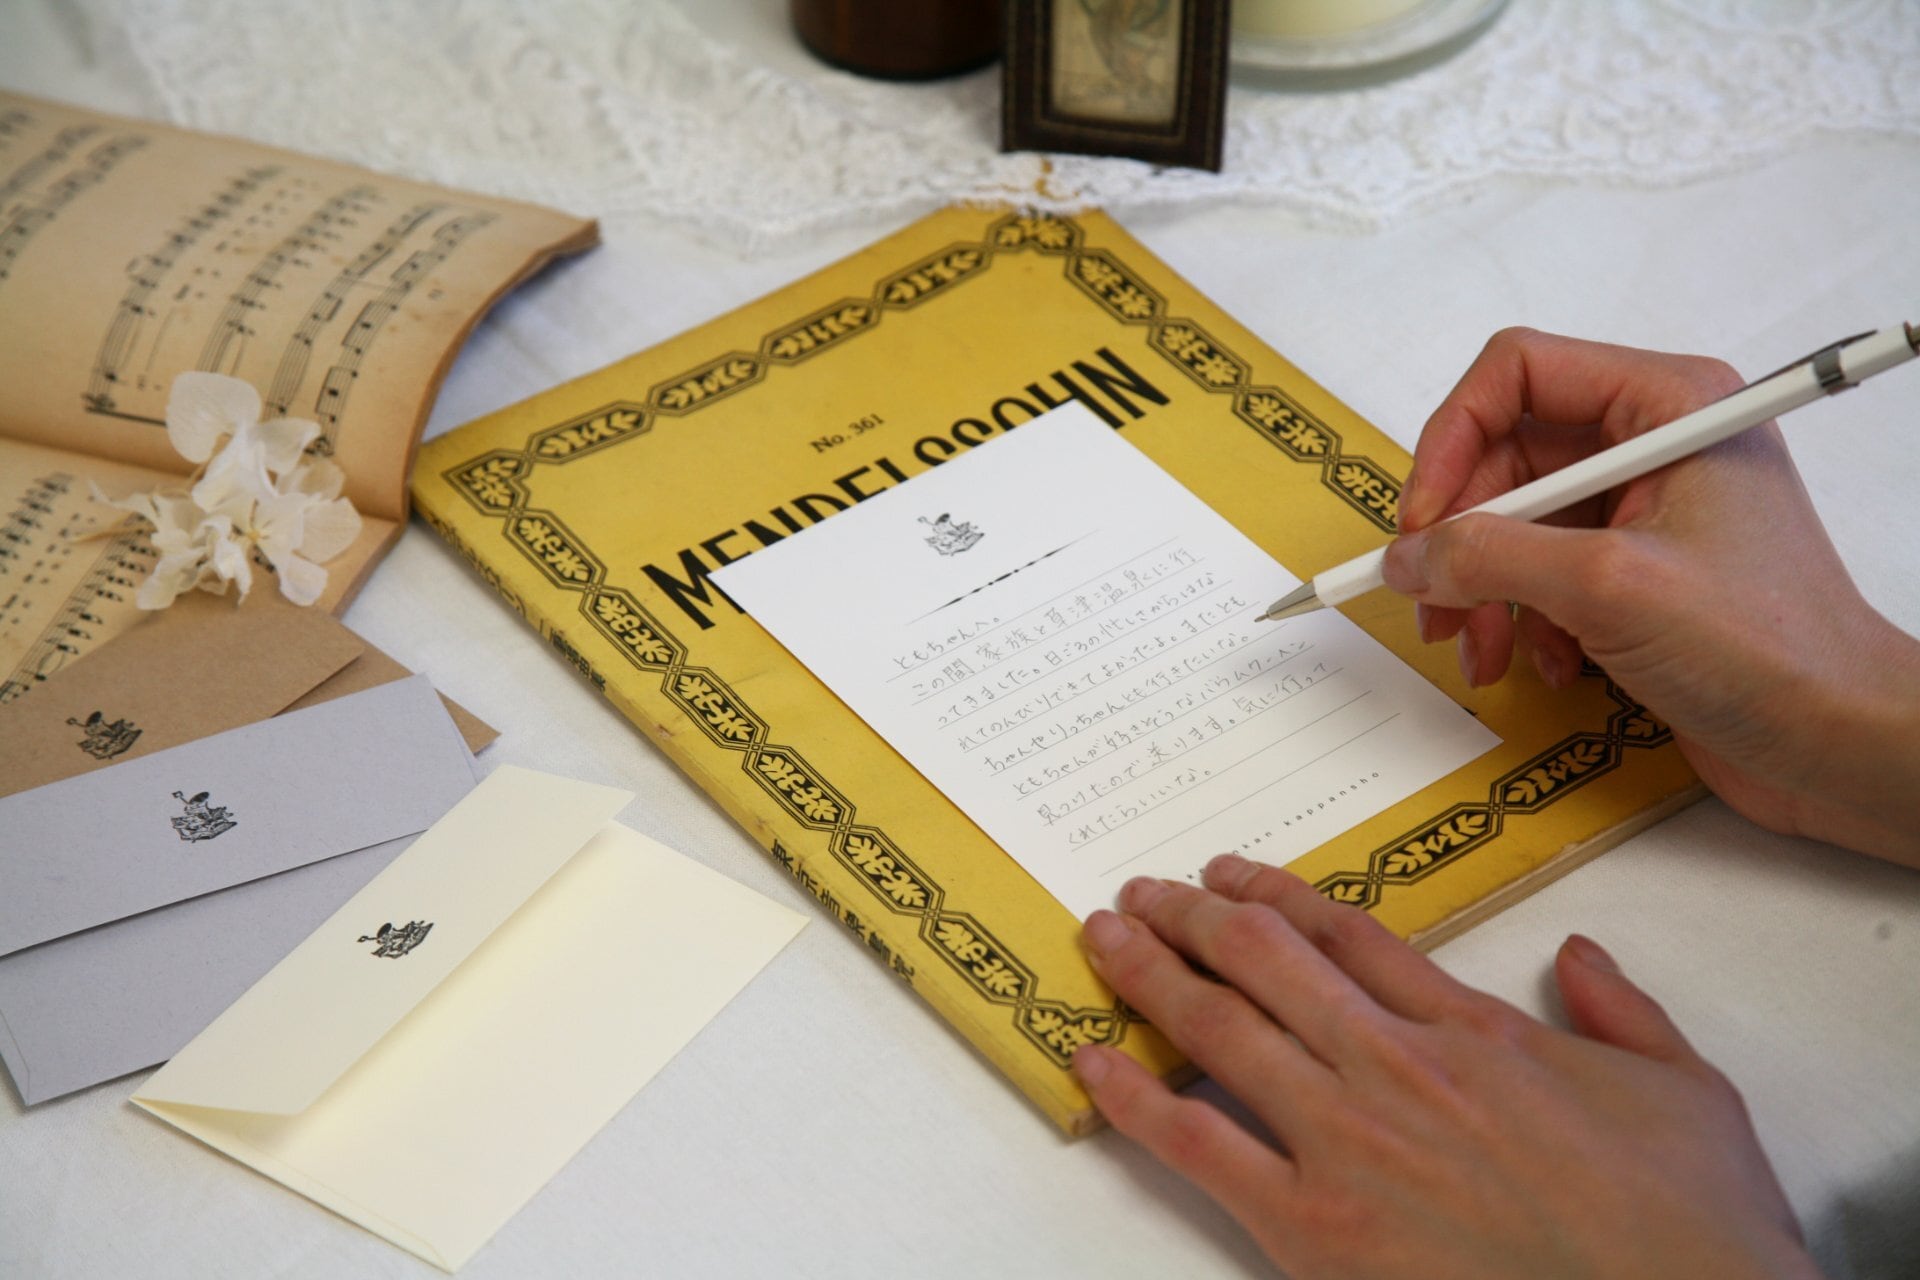 No. 361
MENDELSSOHN
ともちゃんへ。
この間、家族と草津温泉に行
ってきました。日ごろの忙しさからはな
れてのんびりできてよかったよ。またとも
ちゃんやりっちゃんとも行きたいな。
ともちゃんが好きそうなバウムクーヘン
見つけたので送ります。気に行って
くれたらいいな。
kappansho